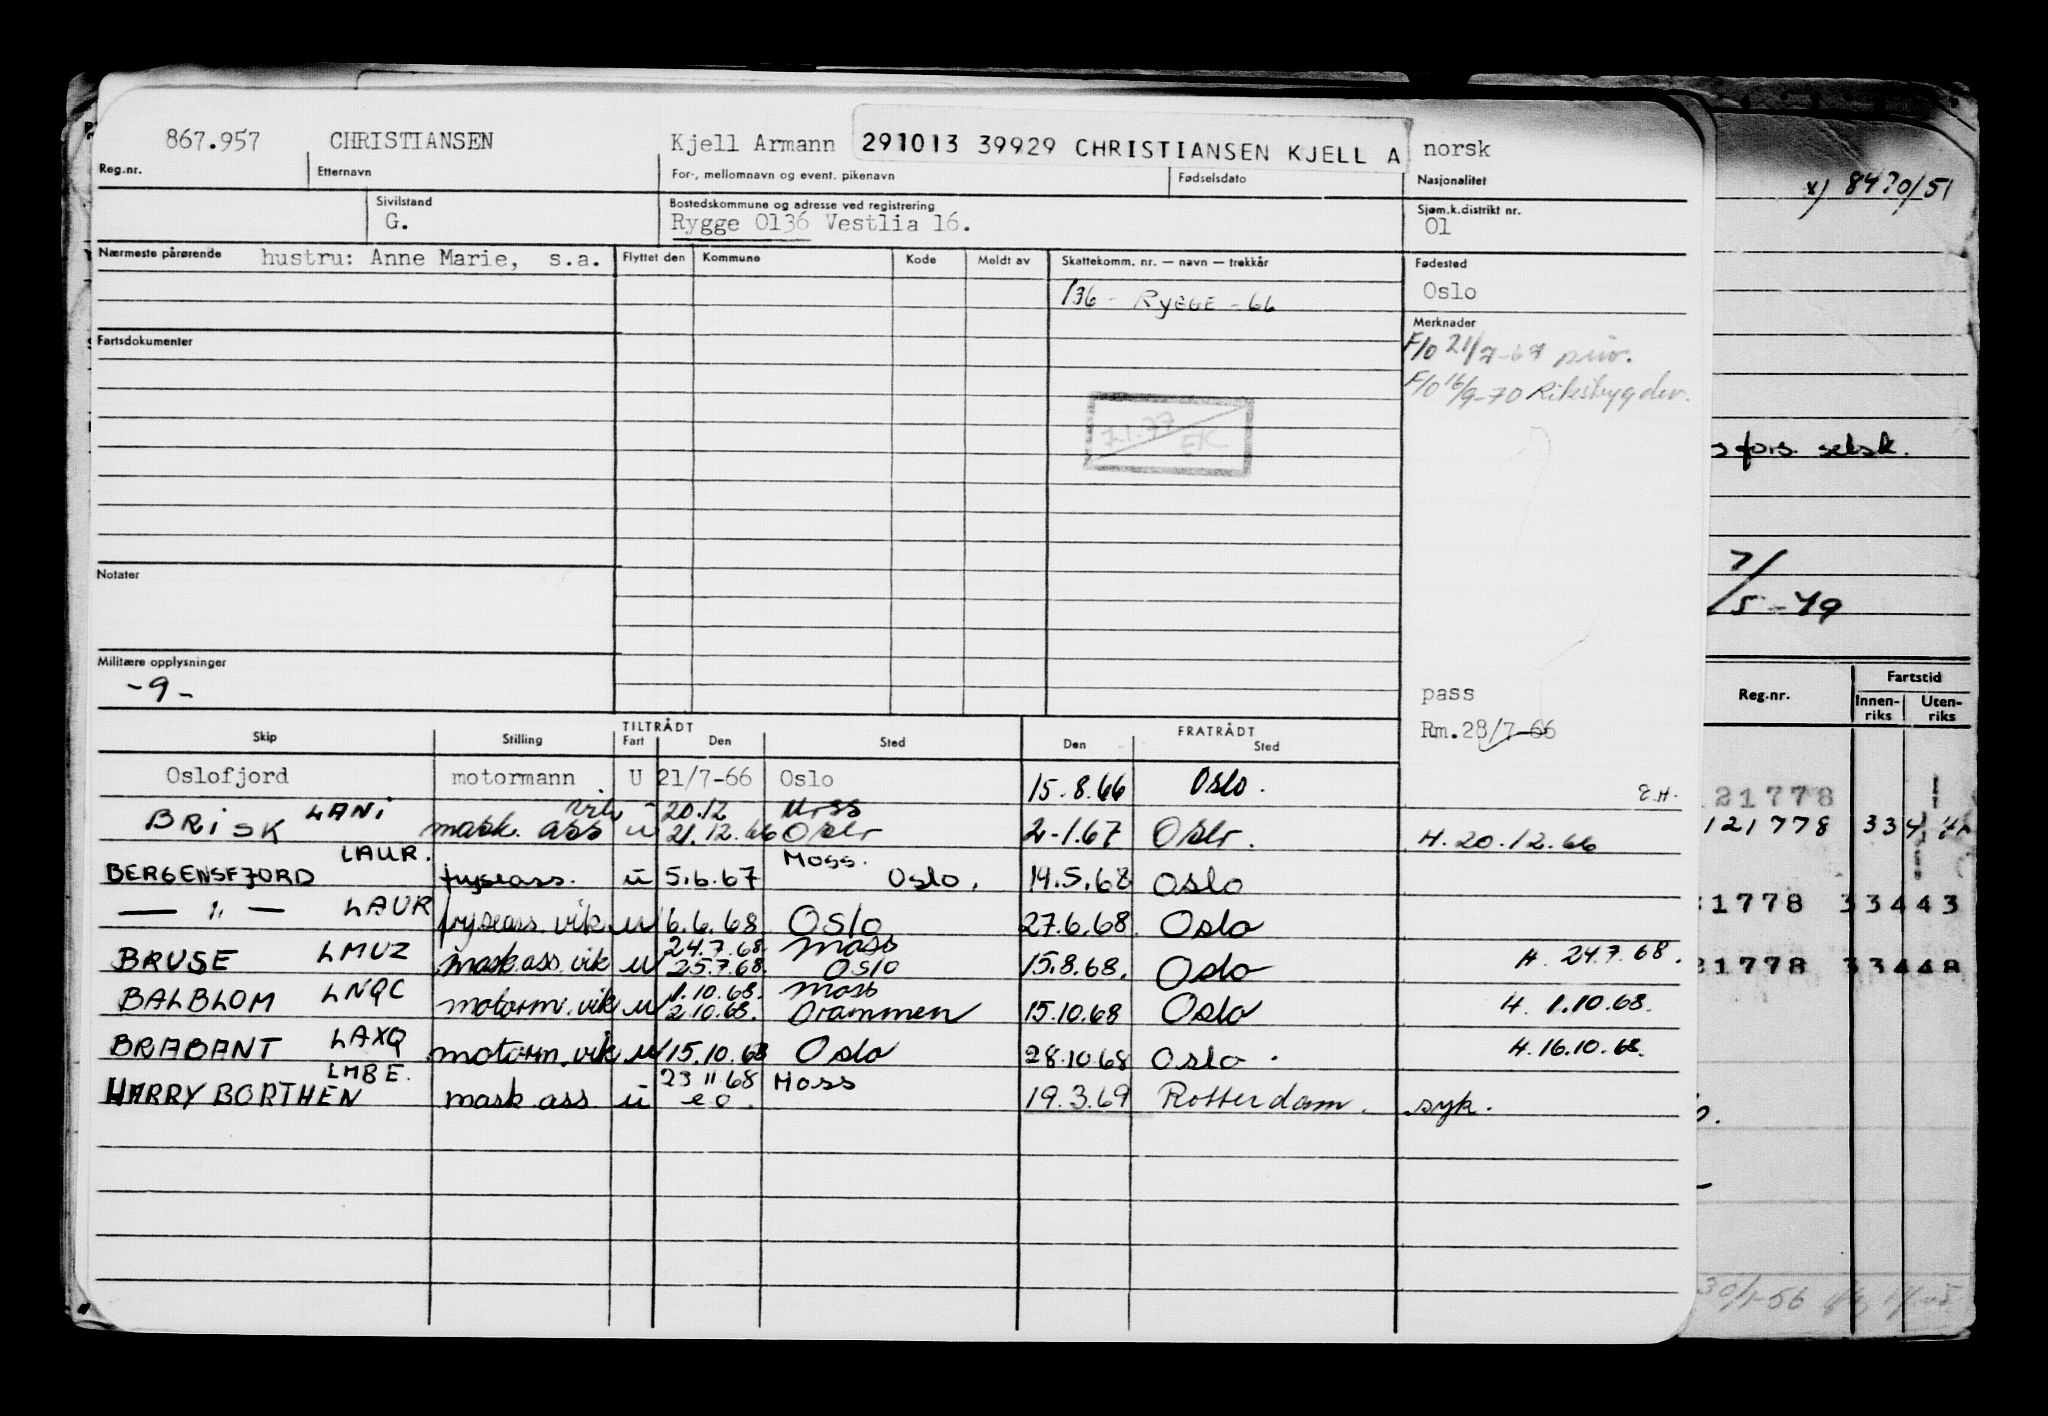 867.957 CHRISTIANSEN Kjell Armann 291013 39929 CHRISTIANSEN KJELL A norsk
Reg.nr. Etternavn For-, mellomnavn og event. pikenavn Fødselsdato Nasjonalitet
x) 8470/51
Sivilstand Bostedskommune og adresse ved registrering Sjøm.k.distrikt nr.
G. Rygge 0136 Vestlia 16. 01
Nærmeste pårørende hustru: Anne Marie, s.a. Flyttet den Kommune Kode Meldt av Skattekomm. nr. — navn — trekkår Fødested
136 - RYGGE - 66 Oslo
Merknader
Fartsdokumenter F/O 21/7-67 priv.
F/O 16/9-70 Riksbygdev.
7.1.77 EK
fors. selsk.
Notater
7/5-49
Militære opplysninger
-9-
pass
Rm.28/7-66
Reg.nr. Fartstid
Innen-riks Uten-riks
Skip Stilling TILTRÅDT Fart Den Sted FRATRÅDT Den Sted
Oslofjord motormann U 21/7-66 Oslo 15.8.66 Oslo. E.H.
21778
vik 20.12 Moss
BRISK LANI mask. ass u 21.12.66 Oslo 2-1.67 Oslo. H. 20.12.66
121778 334
LAUR. Moss.
BERGENSFJORD fryseass. u 5.6.67 Oslo. 14.5.68 Oslo
— " — LAUR fryseass. vik u 6.6.68 Oslo 27.6.68 Oslo
1778 33443
24.7.68 Moss
BRUSE LMUZ mask.ass. vik u 25.7.68 Oslo 15.8.68. Oslo H. 24.7.68.
1778 33448
1.10.68. Moss
BALBLOM LNQC motorm. vik u 2.10.68. Drammen 15.10.68 Oslo H. 1.10.68.
BRABANT LAXQ motorm. vik u 15.10.68 Oslo 28.10.68 Oslo. H. 16.10.68.
LMBE. 23 11 68 Moss
HARRY BORTHEN mask ass u eo. 19.3.69 Rotterdam. syk.
30/1-56